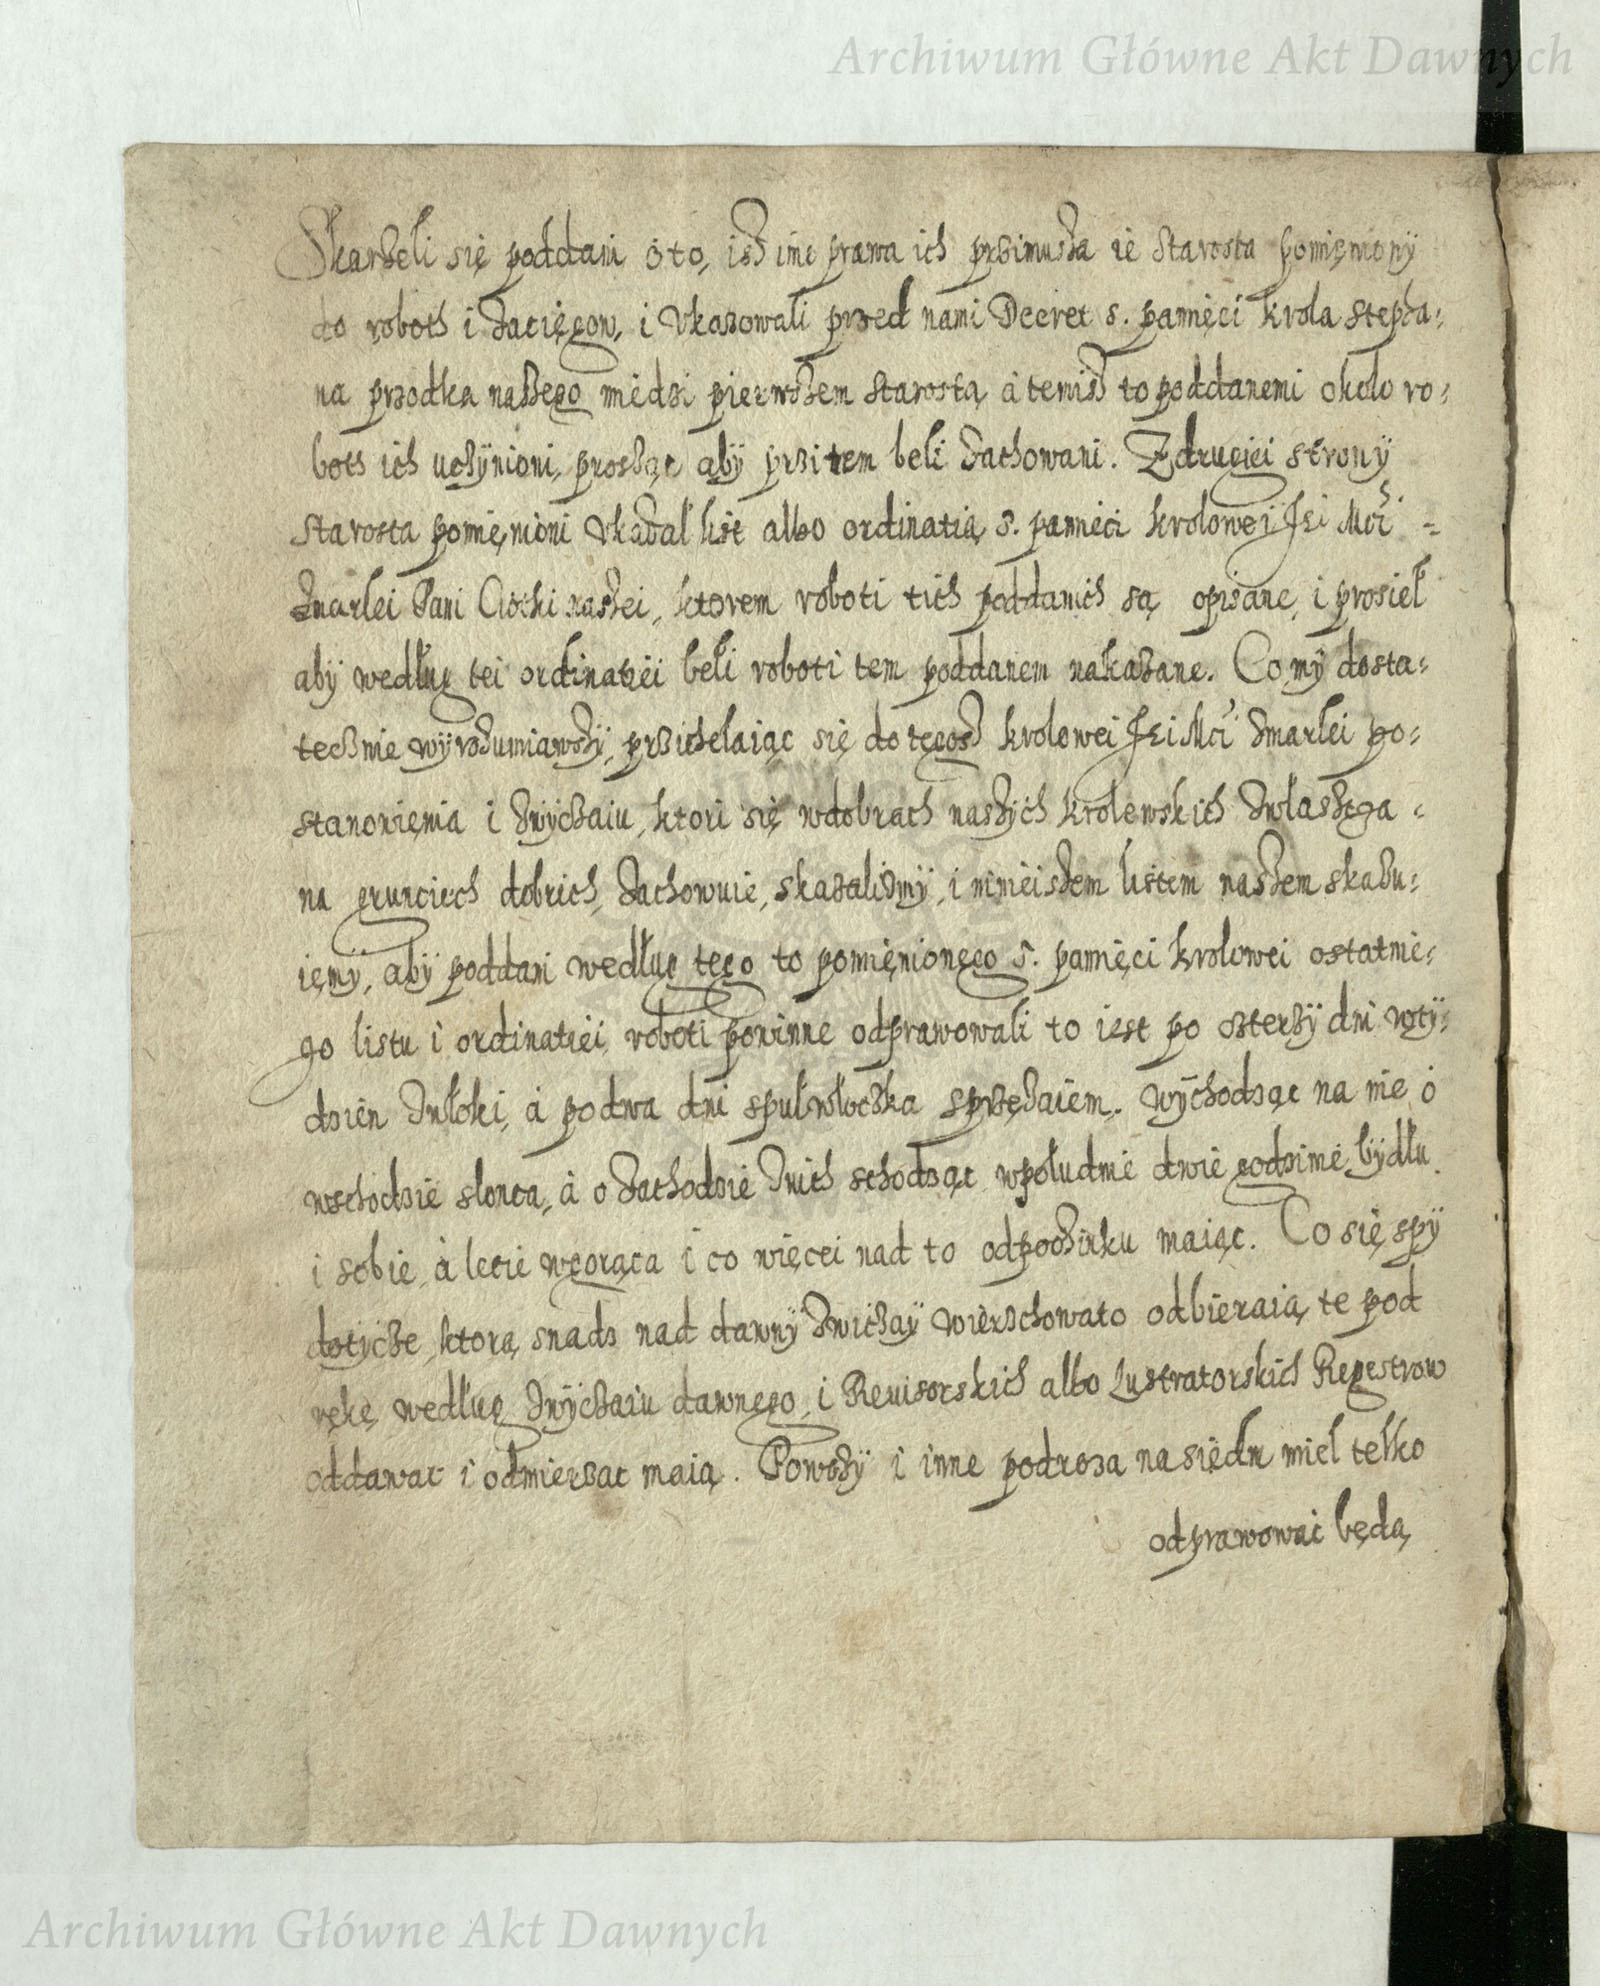 Archiwum Główne Akt Dawnych
Skarzeli się poddani o to, isz imo prawa ich przimusza ie Starosta pomięniony
do roboth i zacięgow, i vkazowali przed nami Decret s. pamięci krola Stepha=
na przodka naszego miedzi pierwszem Starostą à temisz to poddanemi około ro=
both ich uczynioni, prosząc aby przi tem beli zachowani. Z drugiei strony
Starosta pomięnioni vkazał list albo ordinatią s. pamięci krolowei Jei Mci =
zmarłei Pani Ciotki naszei, ktorem roboti tich poddanich są opisane, i prosieł
aby według tei ordinatiei beli roboti tem poddanem nakazane. Co my dosta=
tecznie wyrozumiawszy, przichelaiąc się do tegosz krolowei Jei Mci zmarłei po=
stanowięnia i zwyczaiu, ktori się w dobrach naszych krolewskich zwłaszcza =
na grunciech dobrich, zachowuie, skazalismy, i ninieiszem listem naszem skazu=
iemy, aby poddani według tego to pomięnionego s. pamięci krolowei ostatnie=
go listu i ordinatiei roboti powinne odprawowali to iest po czterzy dni w ty=
dzien z włoki, à po dwa dni s puł włoczka sprzężaiem. Wychodząc na nie o
wschodzie słonca, à o zachodzie z nich schodząc w południe dwie godzinie bydłu
i sobie, à lecie w gorąca i co więcei nad to odpoczinku maiąc. Co się spy
dotycze, ktorą snadz nad dawny zwiczay wierzchowato odbieraią, te pod
rękę według zwyczaiu dawnego, i Reuisorskich albo Lustratorskich Regestrow
oddawac i odmierzac maią. Powozy i inne podroza na siedm miel telko
odprawowac będą
Archiwum Główne Akt Dawnych